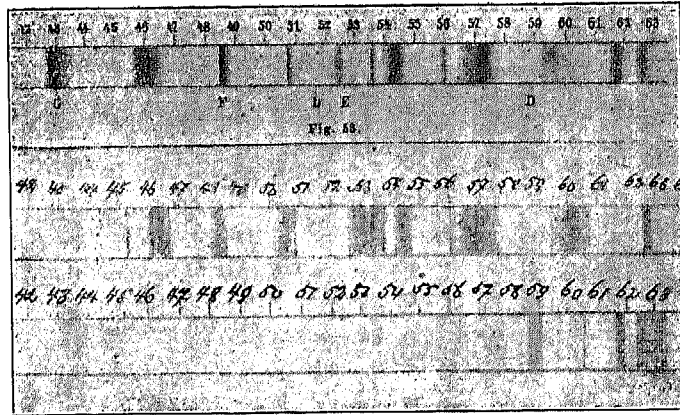 42 43 44 45 46 47 48 49 50 51 52 53 54 55 56 57 58 59 60 61 62 63
G F L E D
Fig. 53.
42 43 44 45 46 47 48 49 50 51 52 53 54 55 56 57 58 59 60 61 62 63 6
42 43 44 45 46 47 48 49 50 51 52 53 54 55 56 57 58 59 60 61 62 63